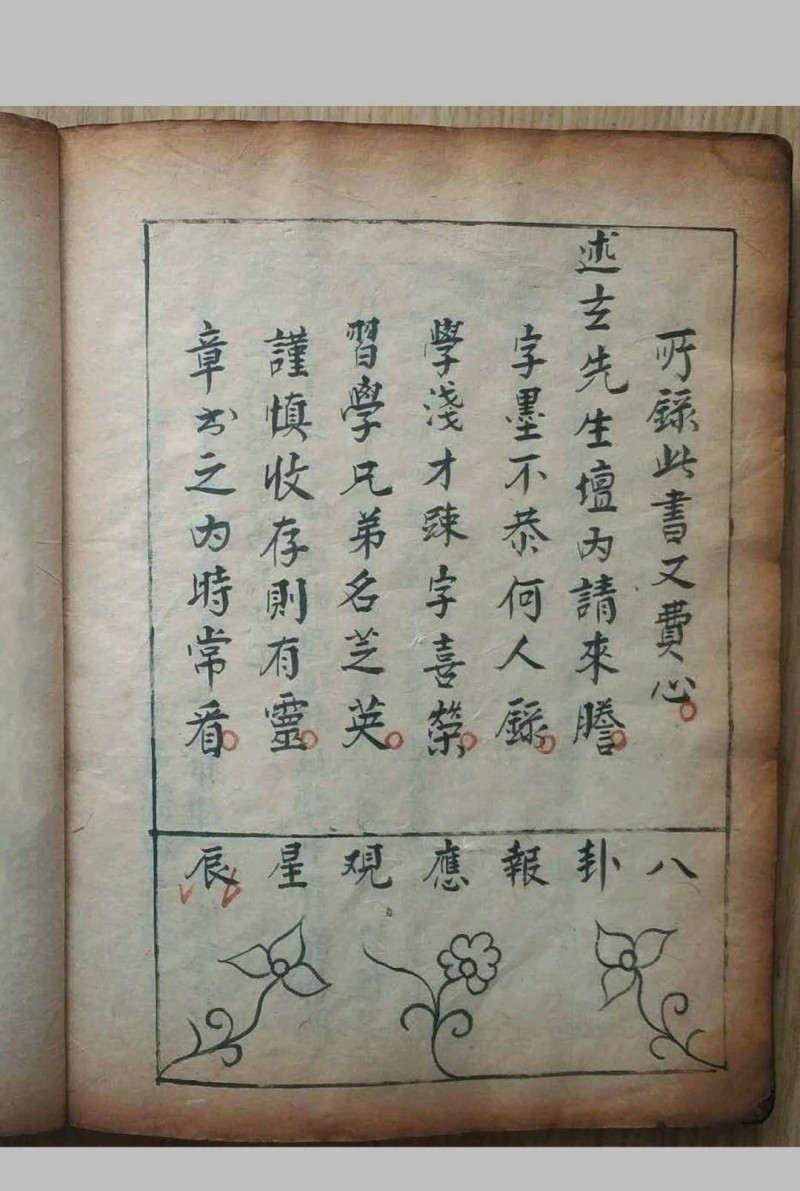 所錄此書又費心
述玄先生壇内請來謄
字墨不恭何人錄
學淺才踈字喜榮
習學兄弟名芝英
謹慎收存則有靈
章出之内時常看
八卦報應观星辰